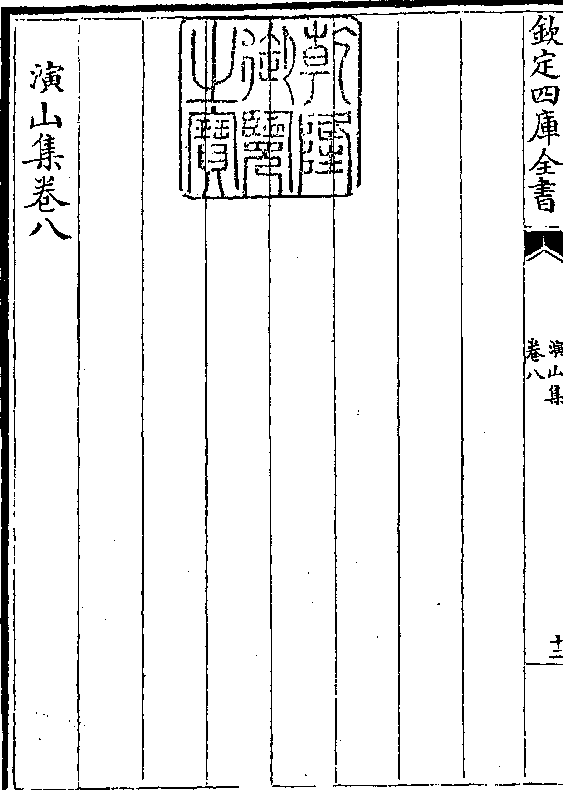 欽定四庫全書
演山集
卷八
十二
乾隆御覽之寶
演山集卷八